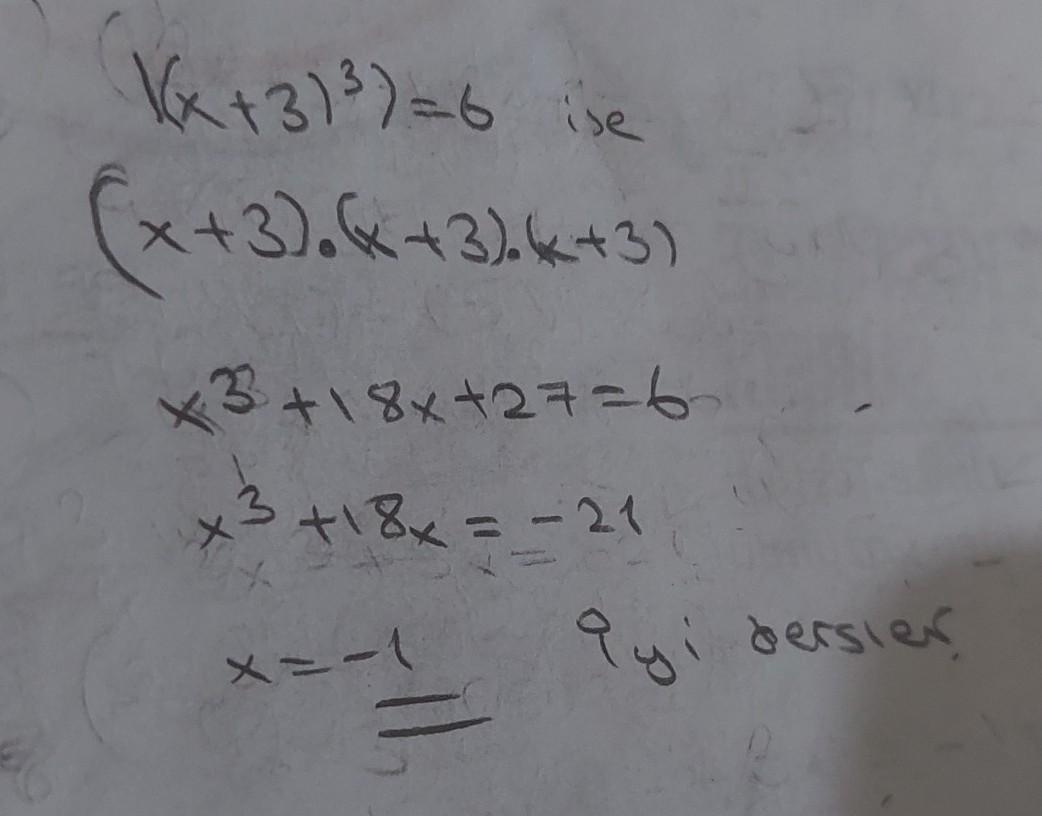 ((x+3)³)=6 ise
(x+3).(x+3).(x+3)
x³+18x+27=6
x³+18x=-21
x=-1 İyi dersler.